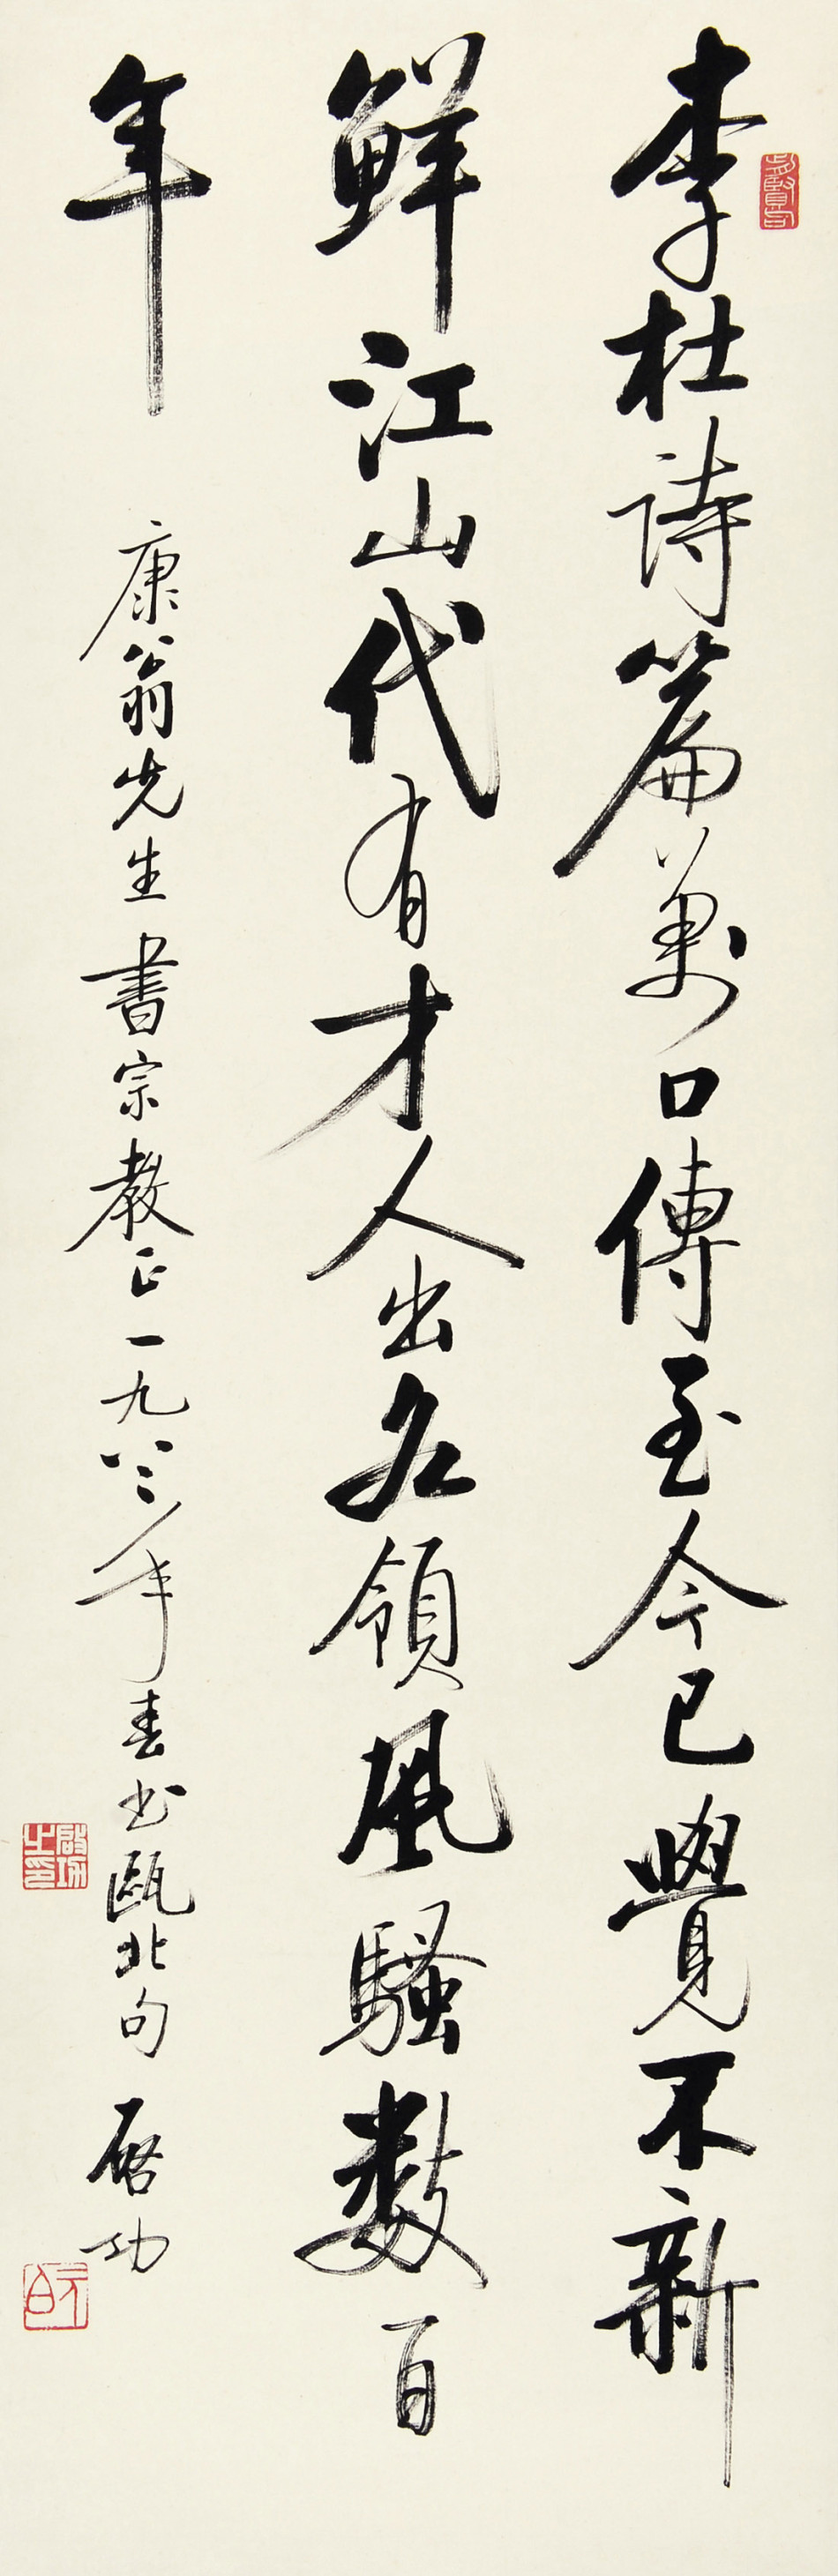 李杜詩篇萬口傳至今已覺不新
鮮江山代有才人出各領風騷数百
年
康翁先生書宗教正一九八二年春书甌北句 啓功
啟功之印
元白